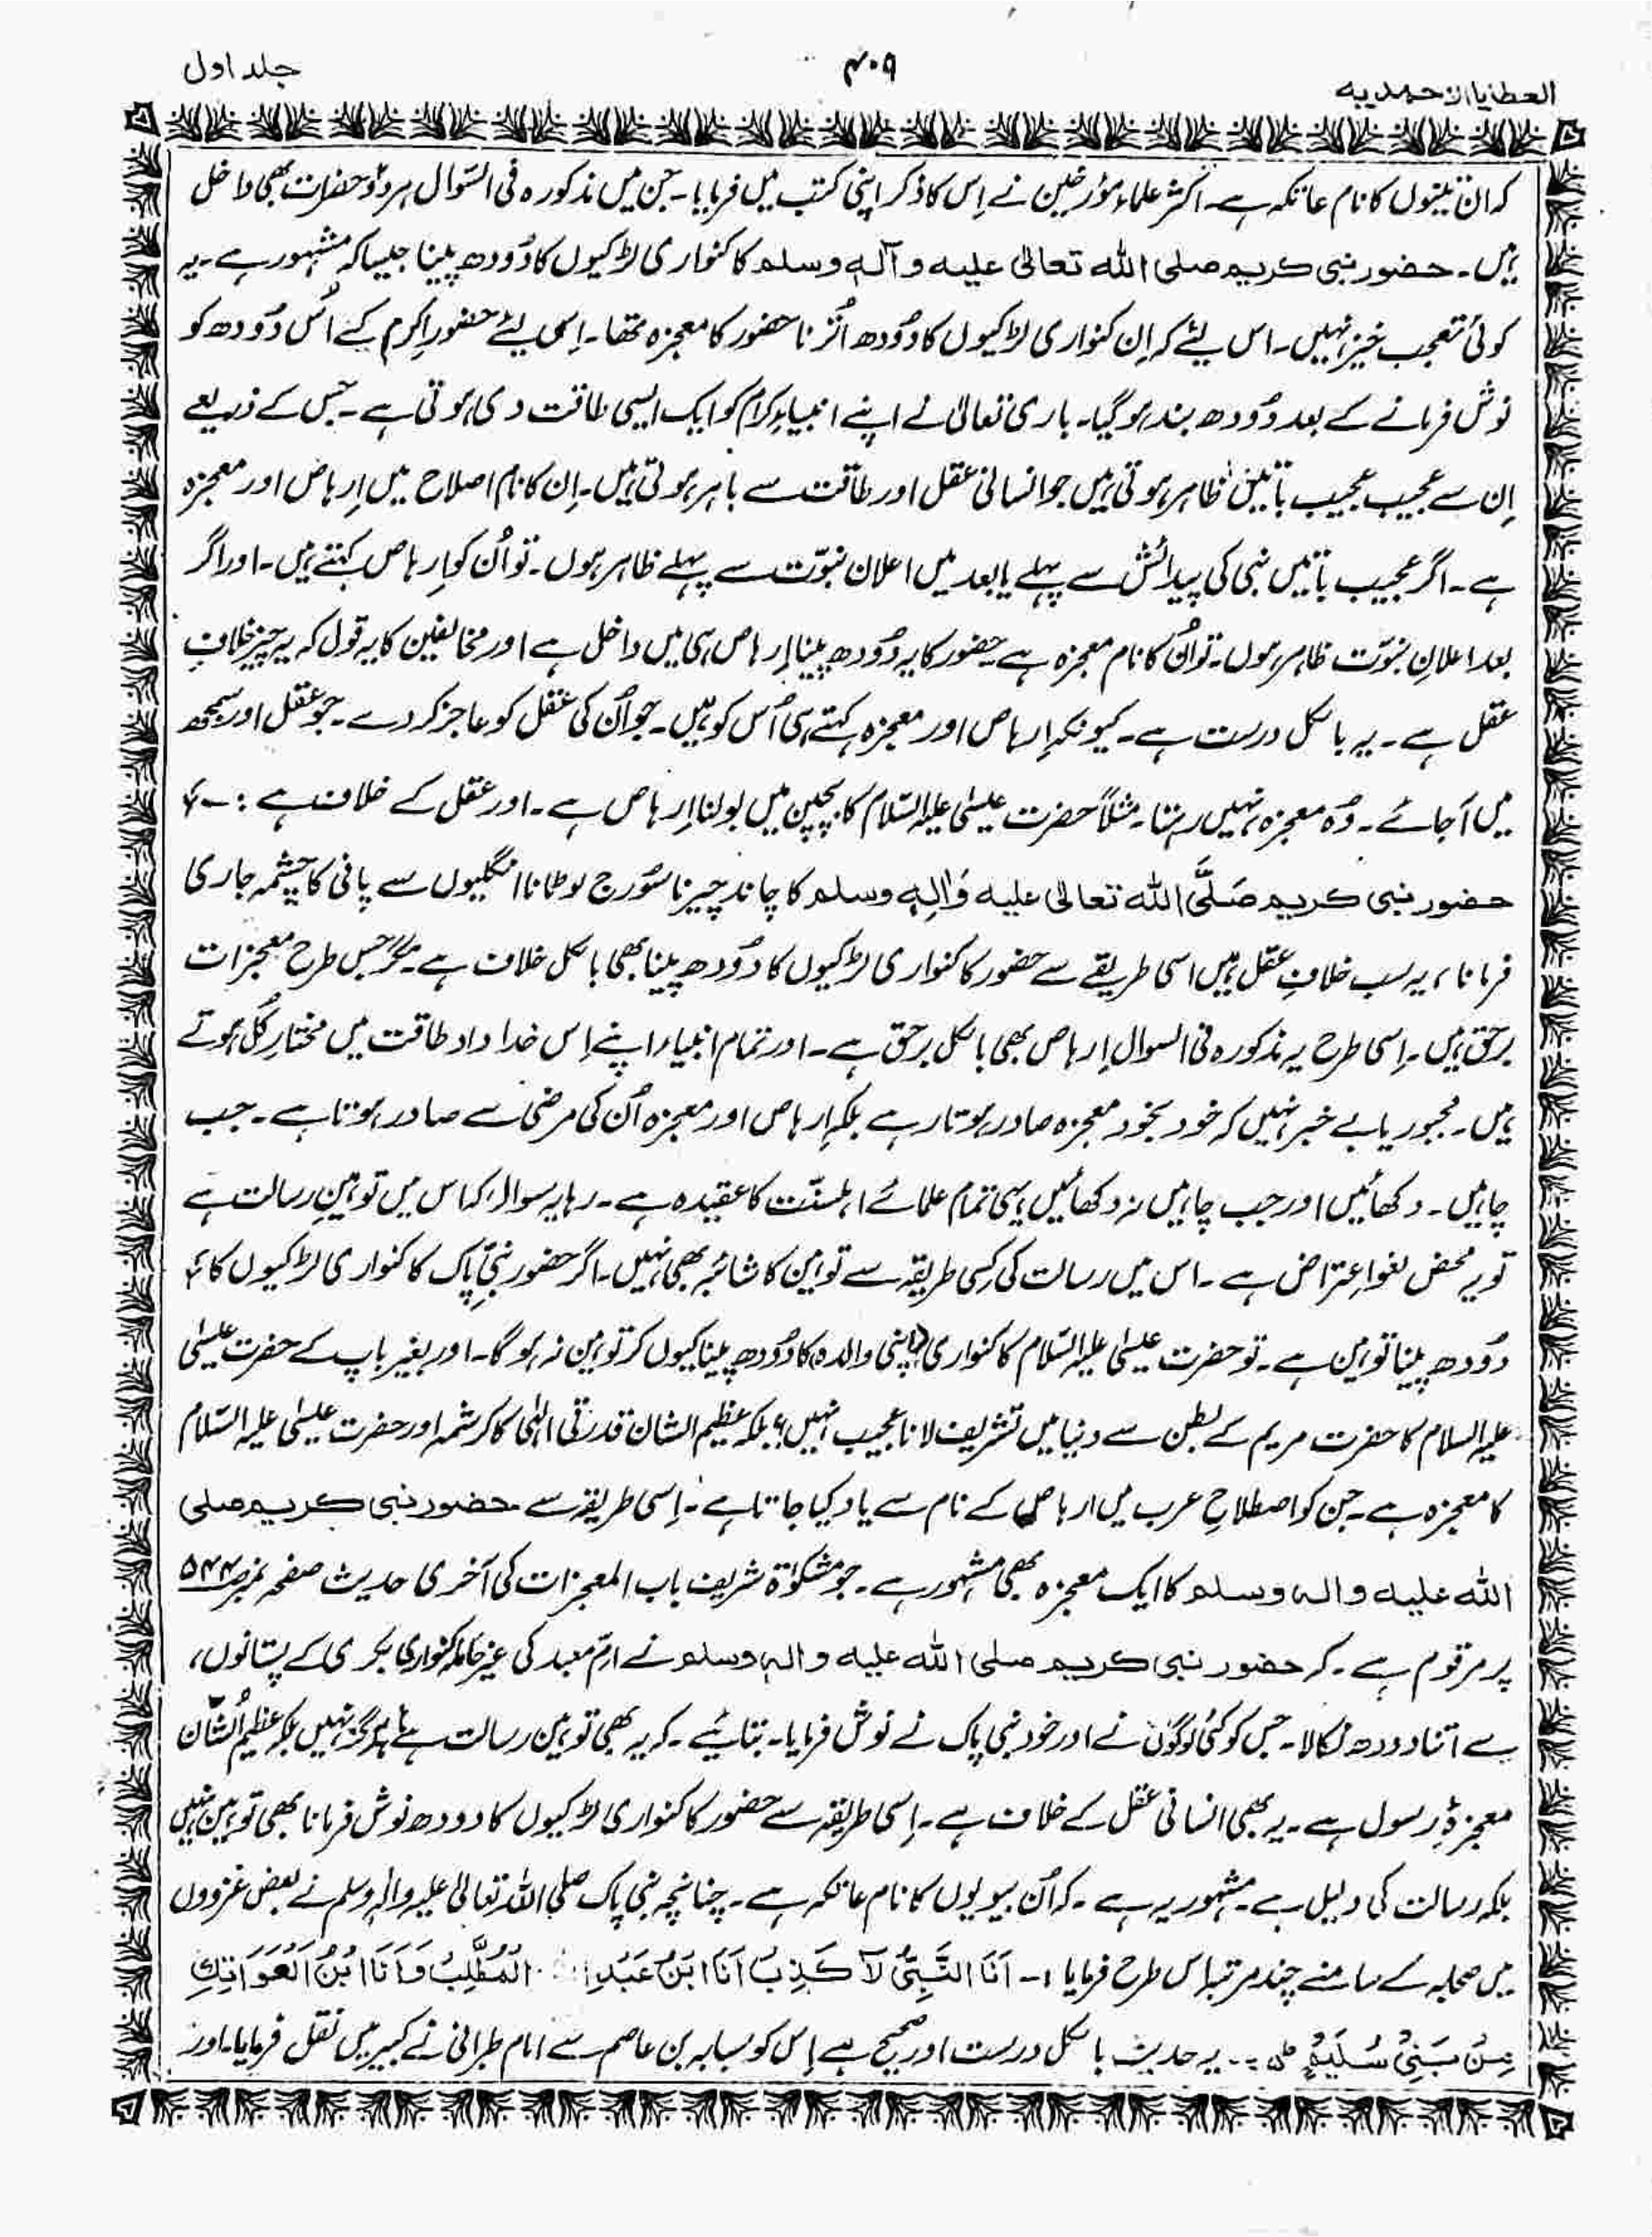 العطایا الاحمدیہ ۴۰۹ جلد اول
کہ ان تینوں کا نام عاتکہ ہے۔ اکثر علماء مؤرخین نے اِس کا ذکر اپنی کتب میں فرمایا۔ جن میں مذکورہ فی السّوال ہر دو حضرات بھی داخل
ہیں۔ حضور نبی کریم صلی اللہ تعالیٰ علیہ و آلہٖ وسلم کا کنواری لڑکیوں کا دُودھ پینا جیسا کہ مشہور ہے۔ یہ
کوئی تعجب خیز نہیں۔ اس لیئے کہ اِن کنواری لڑکیوں کا دُودھ اُترنا حضور کا معجزہ تھا۔ اِسی لیئے حضورِ اکرم کے اُس دُودھ کو
نوش فرمانے کے بعد دُودھ بند ہو گیا۔ باری تعالیٰ نے اپنے انبیاءِ کرام کو ایک ایسی طاقت دی ہوتی ہے۔ جس کے ذریعے
اِن سے عجیب عجیب باتیں ظاہر ہوتی ہیں جو انسانی عقل اور طاقت سے باہر ہوتی ہیں۔ اِن کا نام اصلاح میں اِرہاص اور معجزہ
ہے۔ اگر عجیب باتیں نبی کی پیدائش سے پہلے یا بعد میں اعلان نبوّت سے پہلے ظاہر ہوں۔ تو اُن کو اِرہاص کہتے ہیں۔ اور اگر
بعد اعلانِ نبوّت ظاہر ہوں۔ تو اُن کا نام معجزہ ہے حضور کا یہ دُودھ پینا اِرہاص ہی میں داخل ہے اور مخالفین کا یہ قول کہ یہ چیز خلافِ
عقل ہے۔ یہ بالکل درست ہے۔ کیونکہ اِرہاص اور معجزہ کہتے ہی اُس کو ہیں۔ جو اُن کی عقل کو عاجز کر دے۔ جو عقل اور سمجھ
میں آجائے۔ وُہ معجزہ نہیں رہتا۔ مثلاً حضرت عیسٰی علیہ السّلام کا بچپن میں بولنا اِرہاص ہے۔ اور عقل کے خلاف ہے :-
حضور نبی کریم صَلَّی اللہ تعالیٰ علیہ وَاٰلِہٖ وسلم کا چاند چیرنا سُورج لوٹانا انگلیوں سے پانی کا چشمہ جاری
فرمانا، یہ سب خلافِ عقل ہیں اسی طریقے سے حضور کا کنواری لڑکیوں کا دُودھ پینا بھی بالکل خلاف ہے۔ مگر جس طرح معجزات
برحق ہیں۔ اِسی طرح یہ مذکورہ فی السوال اِرہاص بھی بالکل برحق ہے۔ اور تمام انبیاء اپنے اِس خدا داد طاقت میں مختارِ کُل ہوتے
ہیں۔ مجبور یا بے خبر نہیں کہ خود بخود معجزہ صادر ہوتا رہے بلکہ اِرہاص اور معجزہ اُن کی مرضی سے صادر ہوتا ہے۔ جب
چاہیں۔ دکھائیں اور جب چاہیں نہ دکھائیں یہی تمام علمائے اہلسنّت کا عقیدہ ہے۔ رہا یہ سوال، کہ اس میں توہینِ رسالت ہے
تو یہ محض لغو اعتراض ہے۔ اس میں رسالت کی کِسی طریقہ سے توہین کا شائبہ بھی نہیں۔ اگر حضور نبیِّ پاک کا کنواری لڑکیوں کا
دُودھ پینا توہین ہے۔ تو حضرت عیسٰی علیہ السّلام کا کنواری (اپنی والدہ) کا دُودھ پینا کیوں کر توہین نہ ہو گا۔ اور بغیر باپ کے حضرت عیسٰی
علیہ السلام کا حضرت مریم کے بطن سے دنیا میں تشریف لانا عجیب نہیں؟ بلکہ عظیم الشان قدرتی الٰہی کا کرشمہ اور حضرت عیسٰی علیہ السّلام
کا معجزہ ہے۔ جن کو اصطلاحِ عرب میں ارہاص کے نام سے یاد کیا جاتا ہے۔ اِسی طریقہ سے حضور نبی کریم صلی
اللہ علیہ والہ وسلم کا ایک معجزہ بھی مشہور ہے۔ جو مشکوٰۃ شریف باب المعجزات کی آخری حدیث صفحہ نمبر ۵۴۴
پر مرقوم ہے۔ کہ حضور نبی کریم صلی اللہ علیہ والہٖ وسلم نے امّ معبد کی غیر حاملہ کنواری بکری کے پستانوں،
سے اتنا دودھ نکالا۔ جس کو کئی لوگوں نے اور خود نبی پاک نے نوش فرمایا۔ بتائیے۔ کہ یہ بھی توہین رسالت ہے؟ ہرگز نہیں بلکہ عظیمُ الشّان
معجزۂ رسول ہے۔ یہ بھی انسانی عقل کے خلاف ہے۔ اِسی طریقہ سے حضور کا کنواری لڑکیوں کا دودھ نوش فرمانا بھی توہین نہیں
بلکہ رسالت کی دلیل ہے۔ مشہور یہ ہے۔ کہ اُن بیویوں کا نام عاتکہ ہے۔ چنانچہ نبی پاک صلی اللہ تعالیٰ علیہ والہٖ وسلم نے بعض غزووں
میں صحابہ کے سامنے چند مرتبہ اس طرح فرمایا :- اَنَا النَّبِیُّ لَا کَذِبْ اَنَا ابْنُ عَبْدِ الْمُطَّلِبْ وَ اَنَا ابْنُ الْعَوَاتِکِ
مِنْ بَنِیْ سُلَیْمٍ :۔ یہ حدیث بالکل درست اور صحیح ہے اِس کو سیابہ بن عاصم سے امام طبرانی نے کبیر میں نقل فرمایا۔ اور